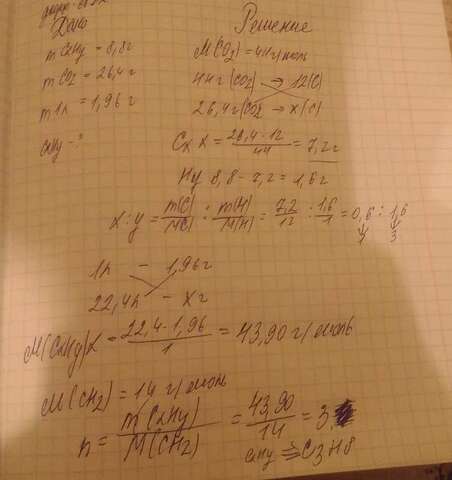 Дано
Решение
m CxHy = 8,8г
m CO2 = 26,4г
m 1л = 1,96г
CxHy - ?
M(CO2) = 44г/моль
44г(CO2) → 12(C)
26,4г(CO2) → x(C)
Cx x = 26,4·12/44 = 7,2г
Hy 8,8-7,2 = 1,6г
x:y = m(C)/M(C) : m(H)/M(H) = 7,2/12 : 1,6/1 = 0,6 : 1,6
1 3
1л - 1,96г
22,4л - xг
M(CxHy)x = 22,4·1,96/1 = 43,90 г/моль
M(CH2) = 14 г/моль
n = m(CxHy)/M(CH2) = 43,90/14 = 3
CxHy => C3H8